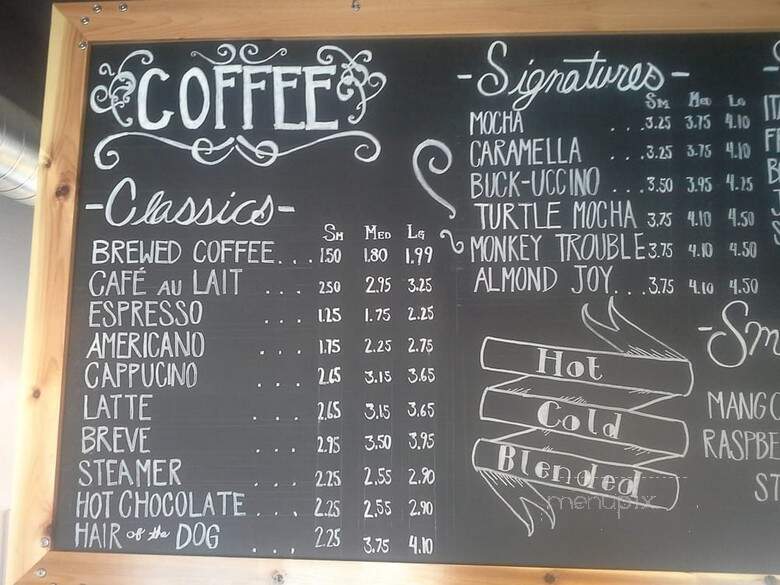 COFFEE
-Classics-
SM MED LG
BREWED COFFEE... 1.50 1.80 1.99
CAFÉ AU LAIT .... 2.50 2.95 3.25
ESPRESSO .... 1.25 1.75 2.25
AMERICANO .... 1.75 2.25 2.75
CAPPUCINO .... 2.65 3.15 3.65
LATTE .... 2.65 3.15 3.65
BREVE .... 2.95 3.50 3.95
STEAMER .... 2.25 2.55 2.90
HOT CHOCOLATE .... 2.25 2.55 2.90
HAIR of the DOG .... 2.25 3.75 4.10
-Signatures-
SM MED LG
MOCHA ...3.25 3.75 4.10
CARAMELLA ...3.25 3.75 4.10
BUCK-UCCINO ...3.50 3.95 4.25
TURTLE MOCHA 3.75 4.10 4.50
MONKEY TROUBLE 3.75 4.10 4.50
ALMOND JOY...3.75 4.10 4.50
Hot
Cold
Blended
-Sm
MANGO
RASPBE
ST
menupix